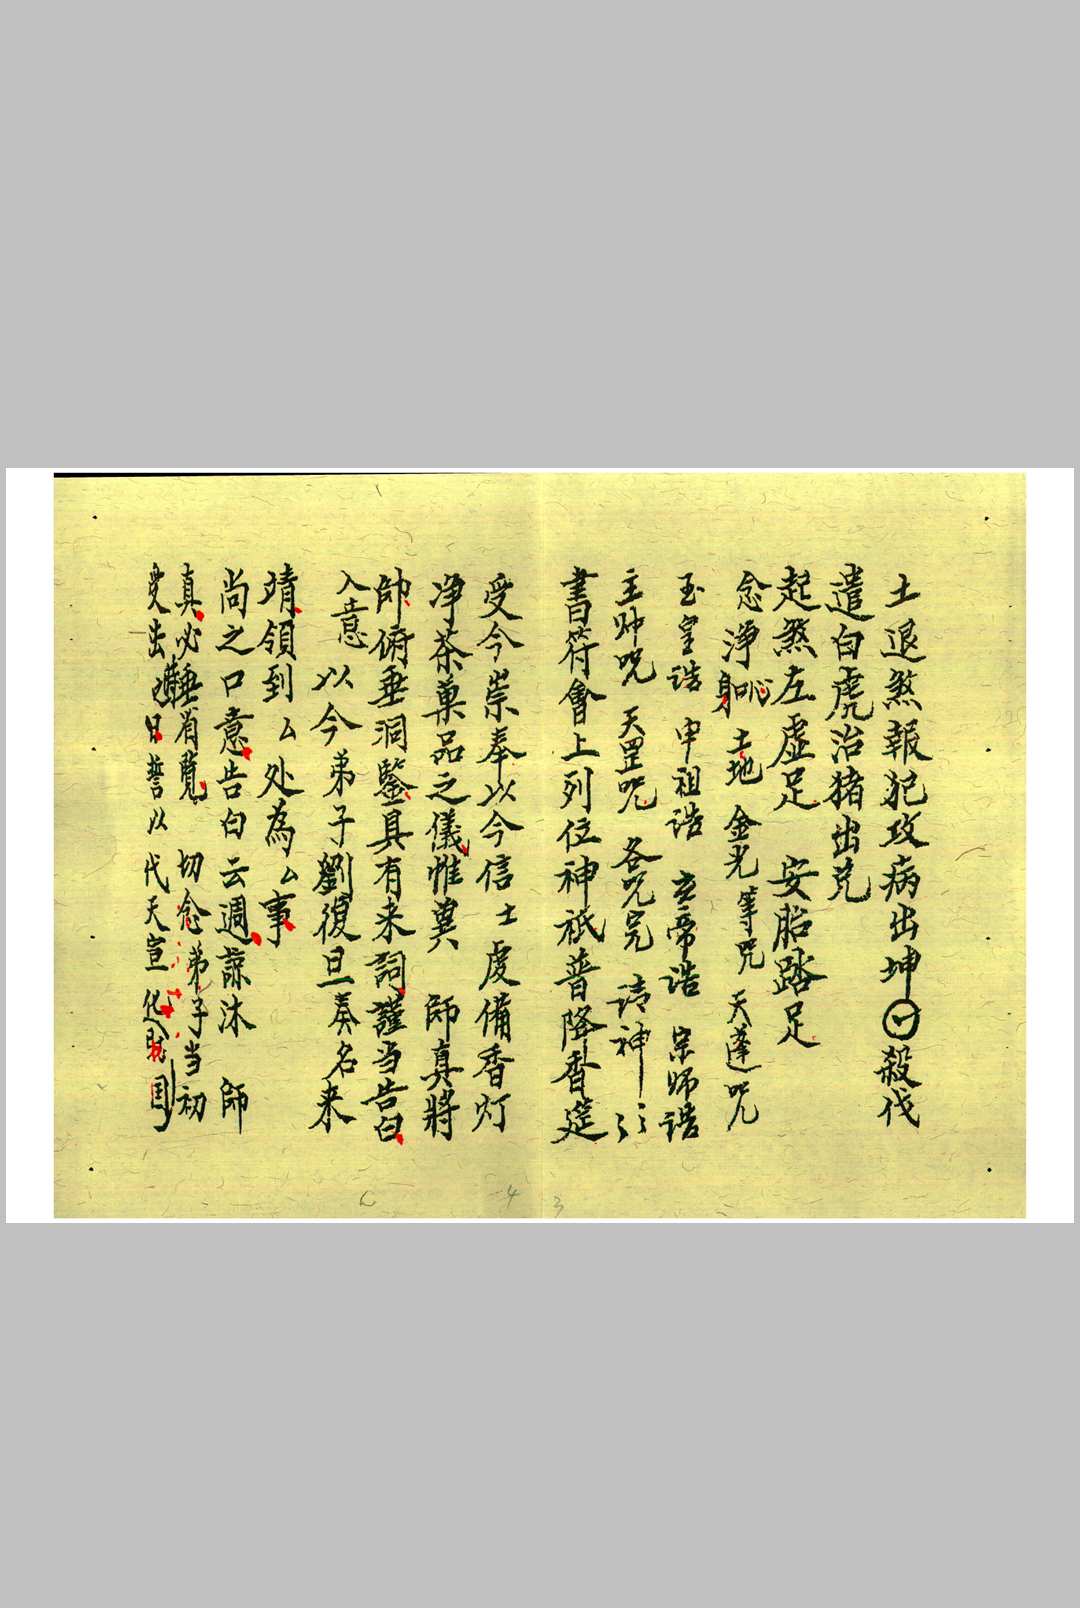 土退煞報犯攻病出坤㊀殺伐
遣白虎治豬出兌
起煞左虛足 安胎踏足
念淨身心 土地 金光等咒 天蓬咒
玉皇誥 申祖誥 玄帝誥 宗师誥
主帅咒 天罡咒 各咒完 请神
書符會上列位神祇普降香筵
受今崇奉以今信士虔備香灯
净茶菓品之儀惟冀 師真將
帥俯垂洞鑒具有来詞謹当告白
入意 以今弟子劉復旦奏名来
靖領到厶处為厶事
尚之口意告白云週諒沐 師
真必垂肖覽 切念弟子当初
受出 日誓以代天宣化
3
4